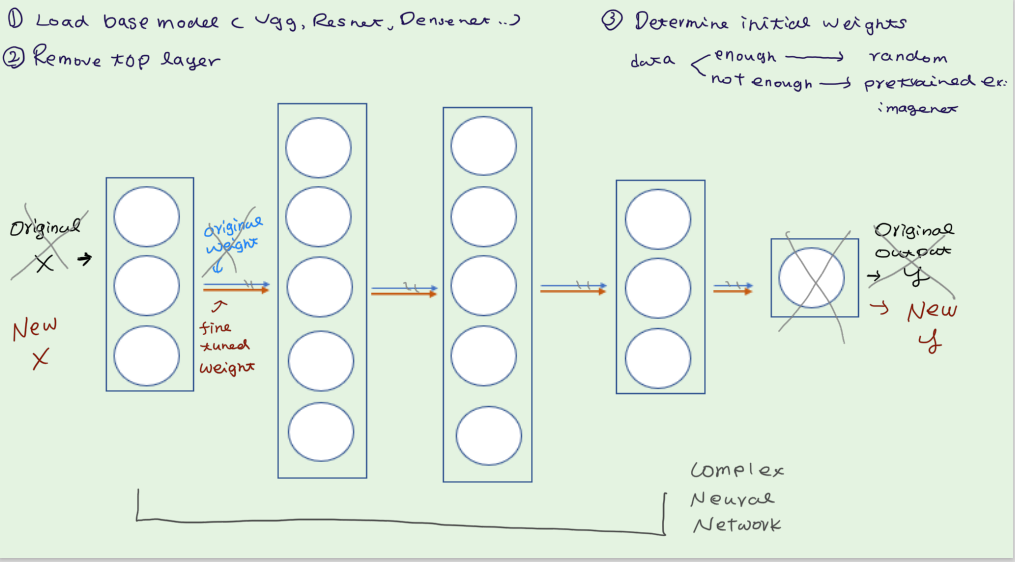 ① Load base model ( Vgg, Resnet, Densenet ..)
② Remove top layer
③ Determine initial weights
data
enough → random
not enough → pretrained ex:
imagenet
Original
X →
New
X
original
weight
fine
tuned
weight
Original
output
→ y
→ New
y
Complex
Neural
Network